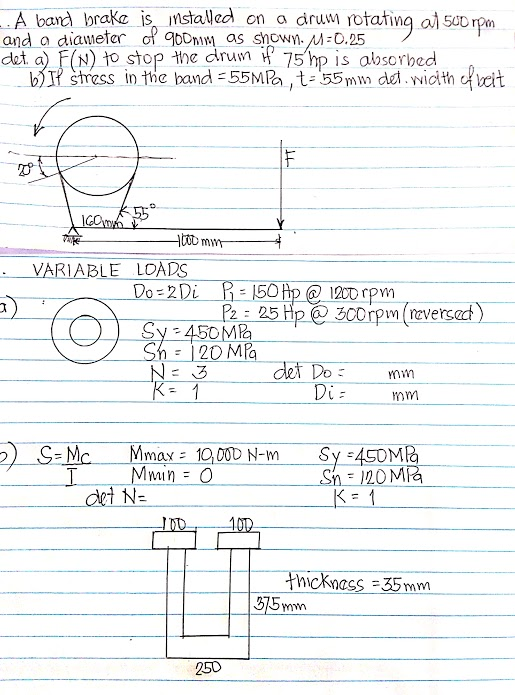 . A band brake is installed on a drum rotating at 500 rpm
and a diameter of 900mm as shown. μ=0.25
det a) F(N) to stop the drum if 75 hp is absorbed
b) If stress in the band = 55MPa, t=55mm det. width of belt
20°
F
160mm
55°
1000 mm
. VARIABLE LOADS
a)
Do=2Di P₁ = 150 Hp @ 1200 rpm
P₂ = 25 Hp @ 300rpm (reversed)
Sy = 450 MPa
Sn = 120 MPa
N = 3 det Do = mm
K = 1 Di = mm
b) S=Mc/I Mmax = 10,000 N-m Sy =450MPa
Mmin = 0 Sn =120 MPa
det N= K = 1
100 100
thickness = 35mm
375mm
250